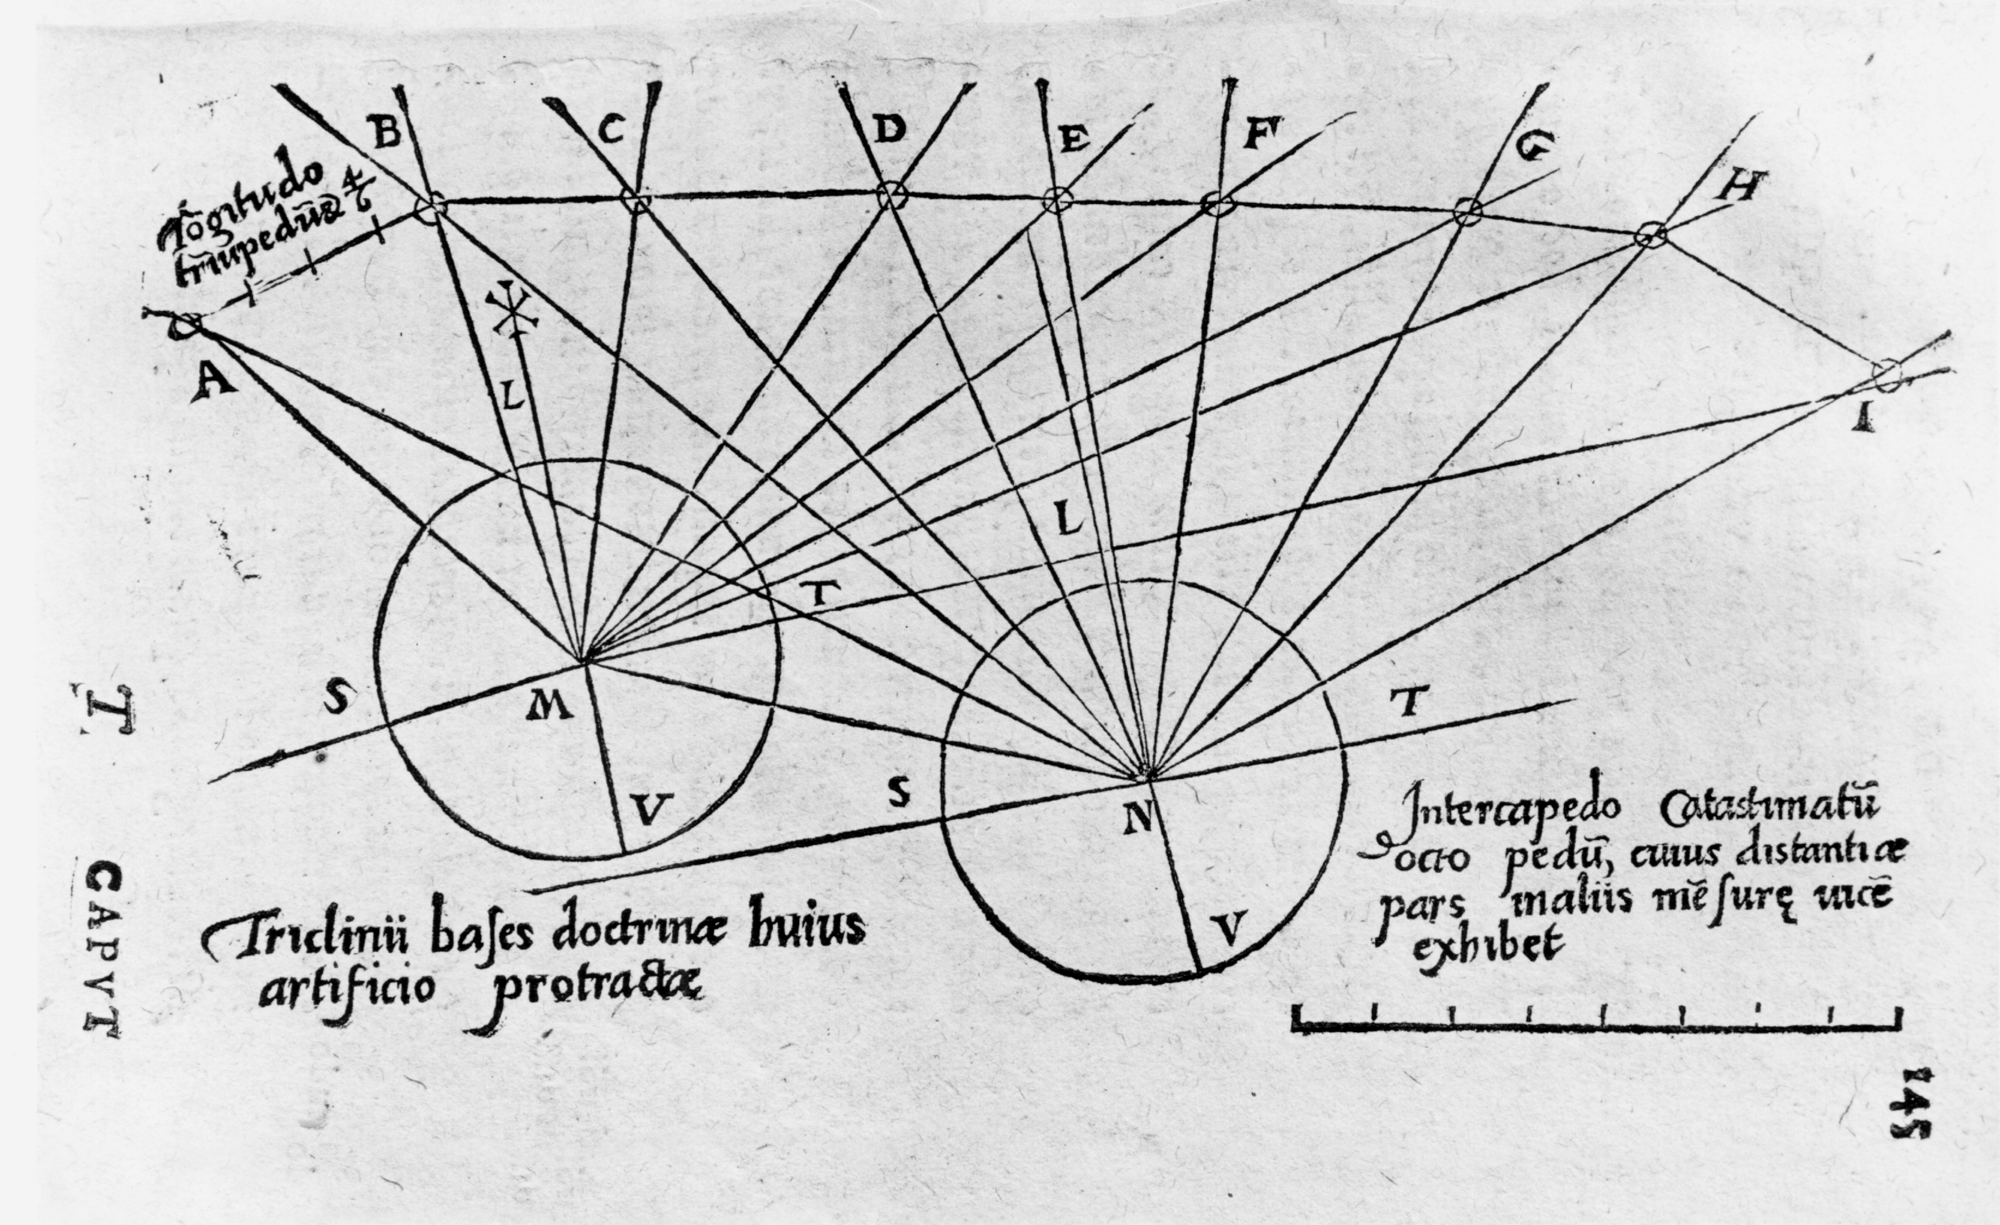 B
C
D
E
F
G
H
lõgitudo
trĩupedũ&
A
L
I
L
T
S
M
T
S
V
N
V
Intercapedo Catastimatũ
octo pedũ, cuius distantiæ
pars maliis mẽſurę uicẽ
exhibet
Triclinii baſes doctrinæ huius
artificio protractæ
T
CAPVT
145